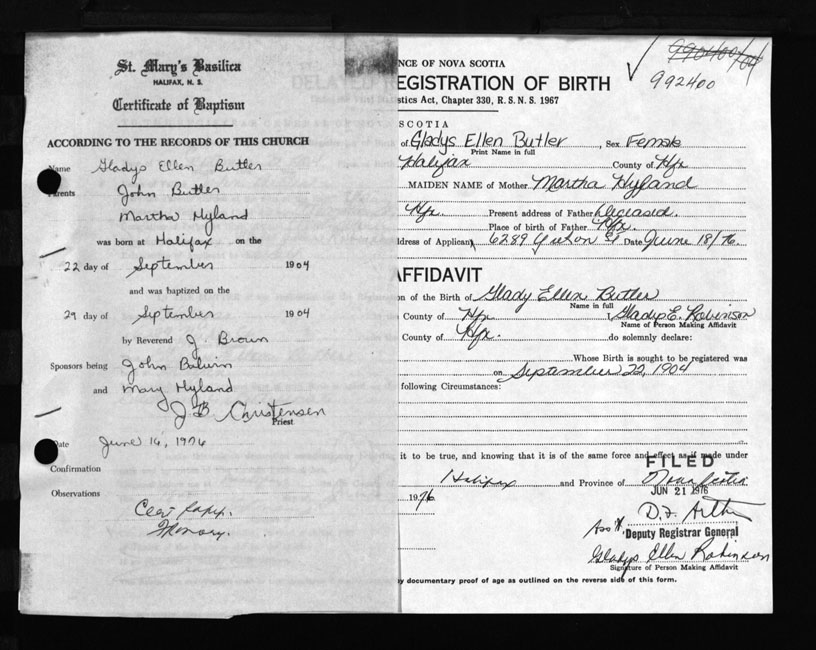 St. Mary's Basilica
HALIFAX, N. S.
Certificate of Baptism
ACCORDING TO THE RECORDS OF THIS CHURCH
Name Gladys Ellen Butler
Parents John Butler
Martha Hyland
was born at Halifax on the
22 day of September 1904
and was baptized on the
29 day of September 1904
by Reverend J. Brown
Sponsors being John
and Mary Hyland
J B Christensen
Priest
Date June 16, 1976
Confirmation
Observations
NCE OF NOVA SCOTIA
EGISTRATION OF BIRTH
stics Act, Chapter 330, R. S. N. S. 1967
992400
SCOTIA
of Gladys Ellen Butler, Sex Female
Print Name in full
Halifax County of Hfx
MAIDEN NAME of Mother Martha Hyland
Hfx. Present address of Father Deceased.
Place of birth of Father Hfx.
dress of Applicant 6289 Yukon St Date June 18/76.
AFFIDAVIT
n of the Birth of Glady Ellen Butler
Name in full
County of Hfx I, Gladys E. Robinson
Name of Person Making Affidavit
County of Hfx. do solemnly declare:
Whose Birth is sought to be registered was
on September 22, 1904
following Circumstances:
it to be true, and knowing that it is of the same force and effect as if made under
Halifax and Province of Nova Scotia
FILED
JUN 21 1976
1976
Deputy Registrar General
Gladys Ellen Robinson
Signature of Person Making Affidavit
y documentary proof of age as outlined on the reverse side of this form.